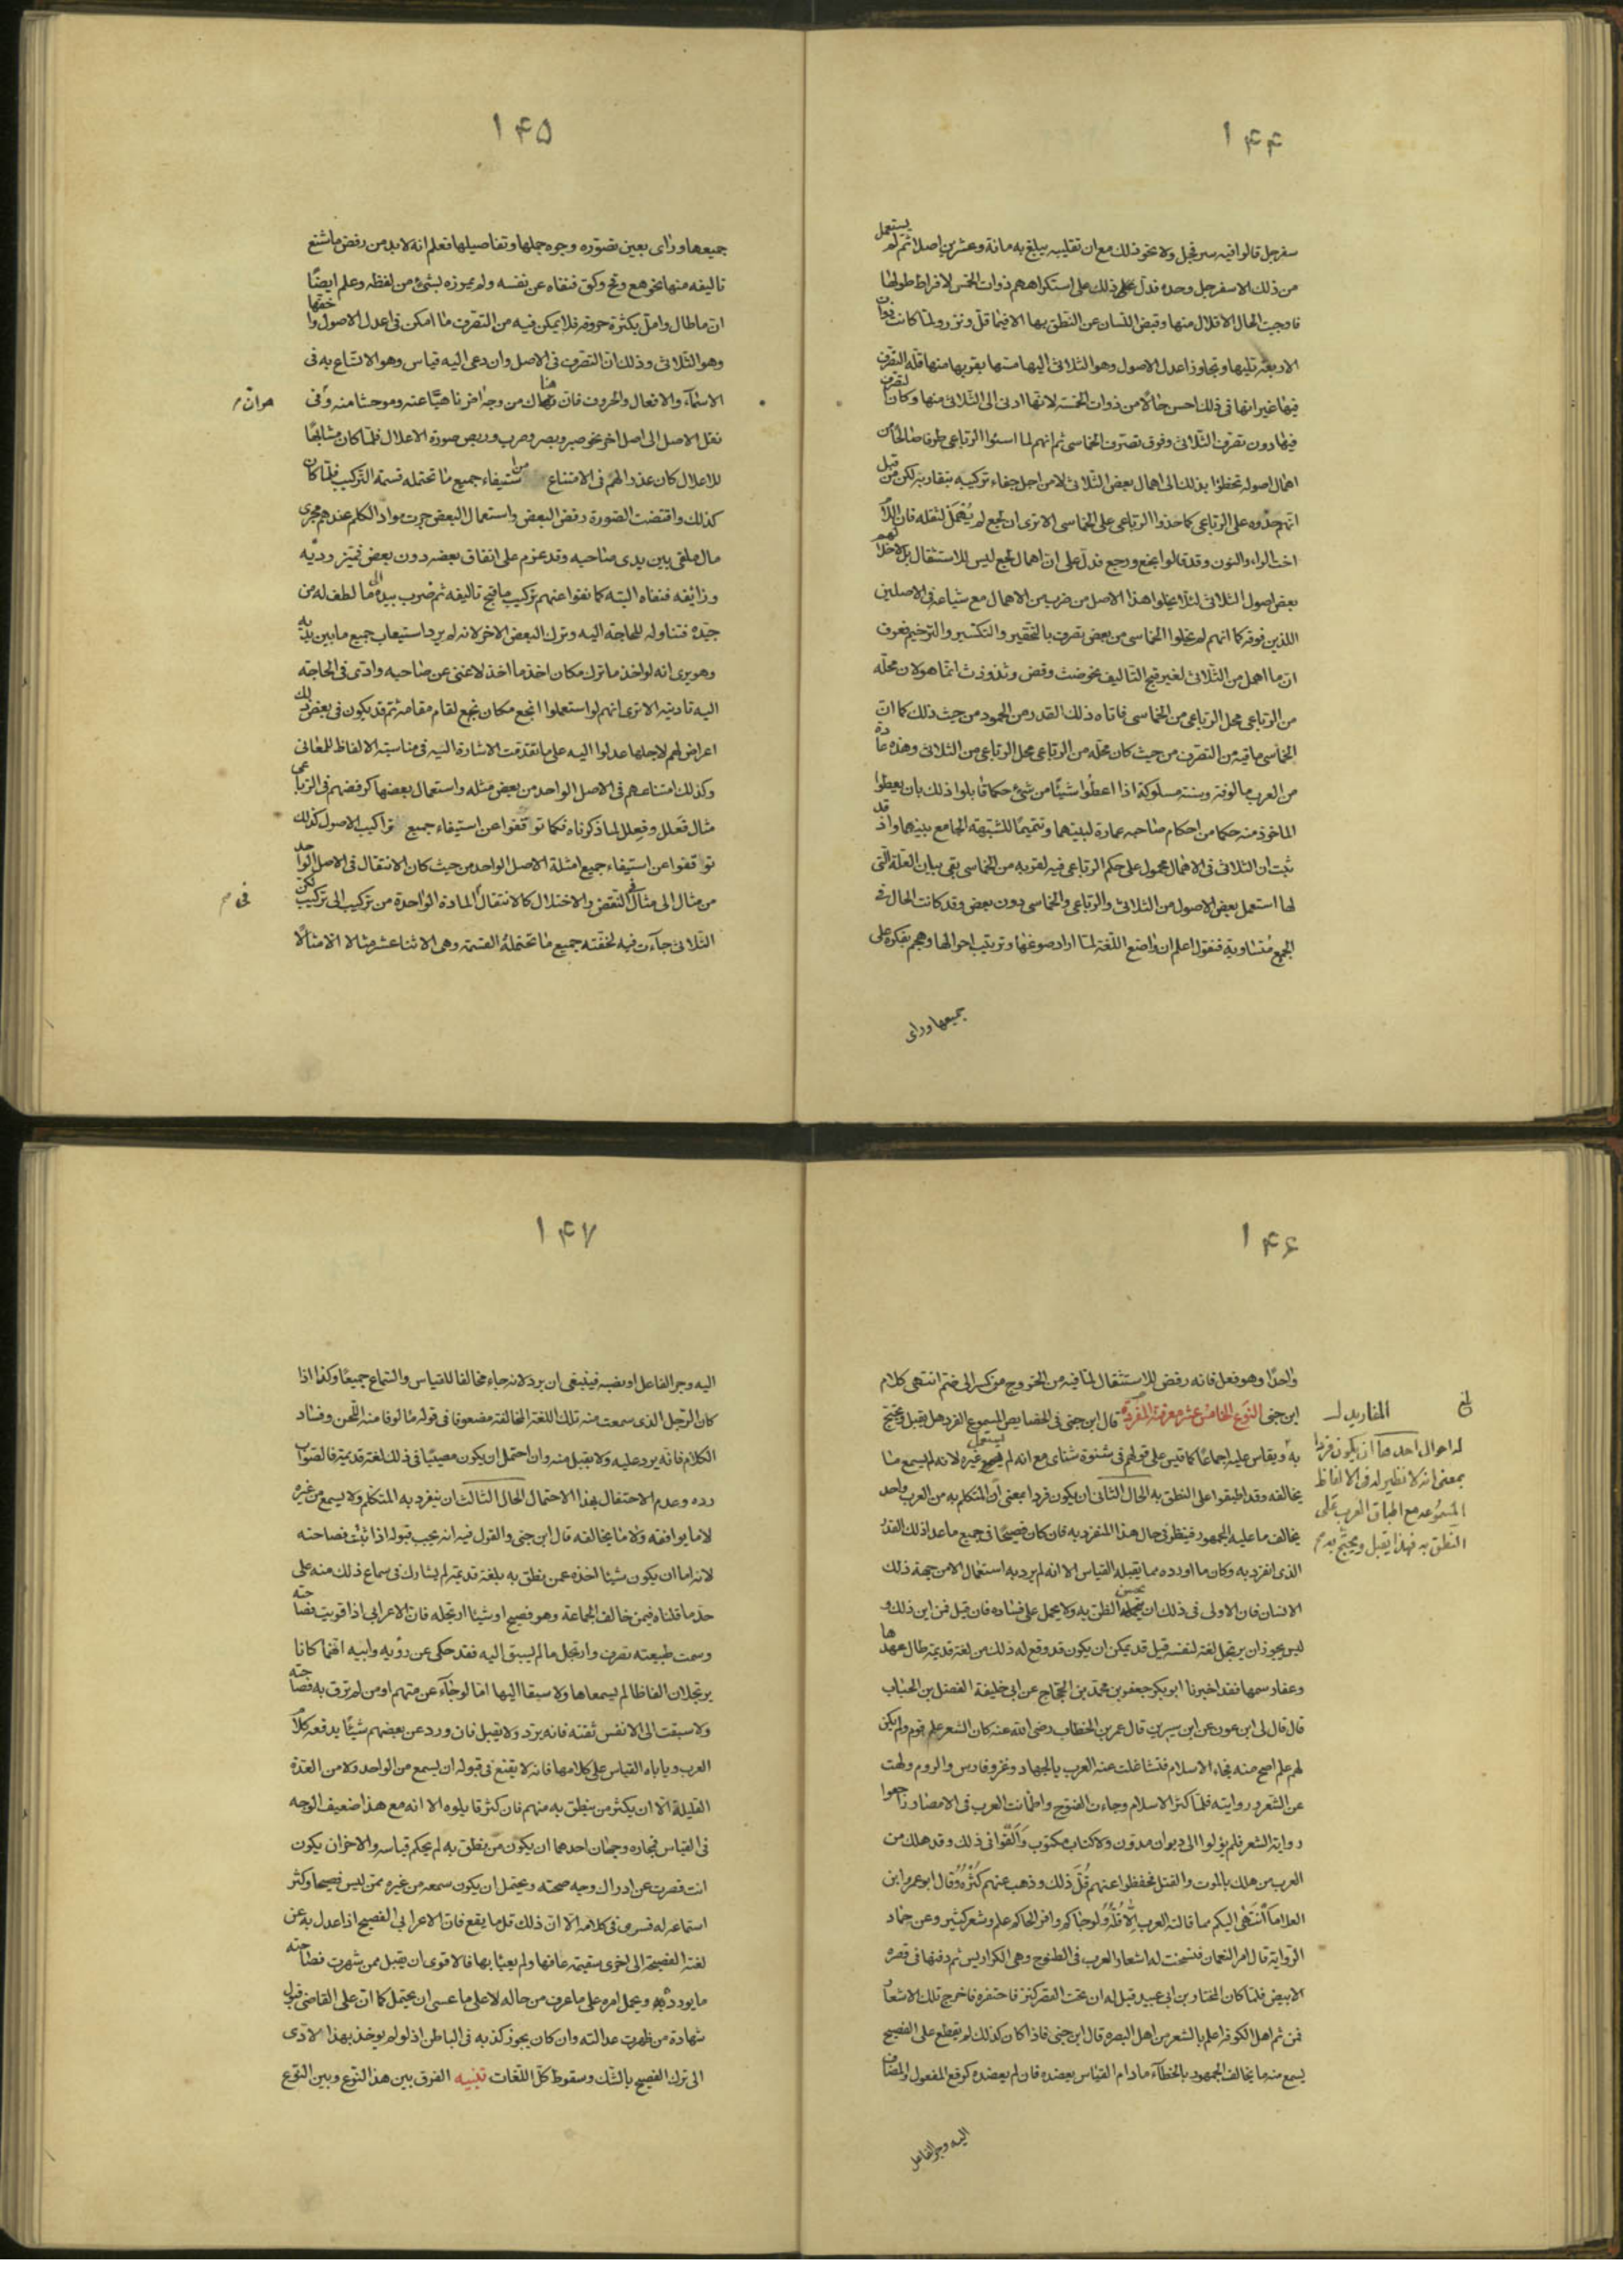 ۱۴۴
سفرجل قالوا فيه سرفجل ولا نحو ذلك مع ان تقليبه يبلغ به مائة وعشرين اصلا ثم لم يستعمل
من ذلك الا سفرجل وحده فدل على ذلك على استكراههم ذوات الخمس لافراط طولها
فاوجبت الحال الاقلال منها وقبض اللسان عن النطق بها الا فيما قل ونزر ولما كانت ذوات
الاربعة تليها وتجاوز اعدل الاصول وهو الثلاثى اليها مسها بقربها منها قلة التصرف
فيها غير انها فى ذلك احسن حالا من ذوات الخمسة لانها ادنى الى الثلاثى منها وكان التصرف
فيها دون تصرف الثلاثى وفوق تصرف الخماسى ثم انهم لما اسئوا الرباعى طرفا صالحا من
اهمال اصوله تخطوا بذلك الى اهمال بعض الثلاثى لا من اجل جفاء تركيبه بتقاربه لكن من قبل
انهم حذوه على الرباعى كما حذوا الرباعى على الخماسى الا ترى ان لجع لم يهمل لثقله فان اللام
اخت الراء والنون وقد قالوا نجع ورجع فدل على ان اهمال لجع ليس للاستثقال بل لاخلالهم
بعض اصول الثلاثى لئلا يخلوا هذا الاصل من ضرب من الاهمال مع شياعه فى الاصلين
اللذين فوقه كما انهم لم يخلوا الخماسى من بعض تصرف بالتحقير والتكسير والترخيم فعرف
ان ما اهمل من الثلاثى لغير قبح التاليف نحو ضث وقض وثذ وذث انما هو لان محله
من الرباعى محل الرباعى من الخماسى فاتاه ذلك القدر من الجمود من حيث ذلك كما ان
الخماسى ما فيه من التصرف من حيث كان محله من الرباعى محل الرباعى من الثلاثى وهذه عادة
من العرب مالوفة وسنة مسلوكة اذا اعطوا شيئا من شئ حكما قابلوا ذلك بان يعطوا
الماخوذ منه حكما من احكام صاحبه عمارة لبينهما وتتميما للشبهة الجامع بينهما واذ قد
ثبت ان الثلاثى فى الاهمال محمول على حكم الرباعى فيه لقربه من الخماسى بقى بيان العلة التى
لها استعمل بعض الاصول من الثلاثى والرباعى والخماسى دون بعض وقد كانت الحال فى
الجميع متساوية فنقول اعلم ان واضع اللغة لما اراد صوغها وترتيب احوالها وهجم بفكره على
جميعها وراى
۱۴۵
جميعها وراى بعين تصوره وجوه جملها وتفاصيلها فعلم انه لابد من رفض ما شنع
تاليفه منها نحو هع وقح وكق فنفاه عن نفسه ولم يمرره بشئ من لفظه وعلم ايضا
ان ما طال وامل بكثرة حروفه فلا يمكن فيه من التصرف ما امكن فى اعدل الاصول واخفها
وهو الثلاثى وذلك ان التصرف فى الاصل وان دعى اليه قياس وهو الاتساع به فى
الاسماء والافعال والحروف فان هناك من وجه اخر ناهيا عنه وموحشا منه وفى
هو ان م
نقل الاصل الى اصل اخر نحو صبر وبصر وصرب وربص صورة الاعلال فلما كان مشابها
للاعلال كان عذرا لهم فى الامتناع من استيفاء جميع ما تحتمله قسمة التركيب فلما كان
كذلك واقتضت الضورة رفض البعض واستعمال البعض جرت مواد الكلم عندهم مجرى
مال ملقى بين يدى صاحبه وقد عزم على انفاق بعضه دون بعض فميز رديه
وزائفه فنفاه البته كما نفوا عنهم تركيب ما قبح تاليفه ثم ضرب بيده الى ما لطف له من
جيده فتناوله للحاجة اليه وترك البعض الاخر لانه لم يرد استيعاب جميع ما بين يديه
وهو يرى انه لو اخذ ما ترك مكان اخذ ما اخذ لاغنى عن صاحبه وادى فى الحاجة
اليه تاديته الا ترى انهم لو استعملوا لجع مكان نجع لقام مقامه ثم قد يكون فى بعض ذلك
اعراض لهم لاجلها عدلوا اليه على ما تقدمت الاشارة اليه فى مناسبة الالفاظ للمعانى
وكذلك امتناعهم فى الاصل الواحد من بعض مثله واستعمال بعضها كرفضهم فى الرباعى
مثال فعلل وفعلل لما ذكرناه فكما توقفوا عن استيفاء جميع تراكيب الاصول كذلك
توقفوا عن استيفاء جميع امثلة الاصل الواحد من حيث كان الانتقال فى الاصل الواحد
من مثال الى مثال فى النقص والاختلال كالانتقال المادة الواحدة من تركيب الى تركيب لكن
فى صم
الثلاثى جاءت فيه لخفته جميع ما تحتمله القسمة وهى الاثنا عشر مثالا الا مثالا
۱۴۶
واحدا وهو فعل فانه رفض للاستثقال لما فيه من الخروج من كسر الى ضم انتهى كلام
ابن جنى النوع الخامس عشر معرفة المفردة قال ابن جنى فى الخصايص المسموع الفرد هل يقبل ويحتج
به ويقاس عليه اجماعا كما قيس على قولهم فى شنوءة شنائى مع انه لم يستعمل غيره لانه لم يسمع ما
له احوال احدها ان يكون فردا
بمعنى انه لا نظير له فى الالفاظ
المسموعه مع اطباق العرب على
النطق به فهذا يقبل ويحتج به صح
يخالفه وقد اطبقوا على النطق به الحال الثانى ان يكون فردا بمعنى ان المتكلم به من العرب واحد
يخالف ما عليه الجمهور فينظر فى حال هذا المنفرد به فان كان فصيحا فى جميع ما عدا ذلك القدر
الذى انفرد به وكان ما اورده مما يقبله القياس الا انه لم يرد به استعمال الا من جهة ذلك
الانسان فان الاولى فى ذلك ان يحسن الظن به ولا يحمل على فساده فان قيل فمن اين ذلك و
ليس يجوز ان يرتجل لغة لنفسه قيل قد يمكن ان يكون قد وقع له ذلك من لغة قديمة طال عهدها
وعفا رسمها فقد اخبرنا ابو بكر جعفر بن محمد بن الحجاج عن ابى خليفة الفضل بن الحباب
قال قال لى ابن عون عن ابن سيرين قال عمر بن الخطاب رضى الله عنه كان الشعر علم قوم ولم يكن
لهم علم اصح منه فجاء الاسلام فتشاغلت عنه العرب بالجهاد وغزو فارس والروم ولهت
عن الشعر وروايته فلما كثر الاسلام وجاءت الفتوح واطمانت العرب فى الامصار راجعوا
رواية الشعر فلم يؤلوا الى ديوان مدون ولا كتاب مكتوب وألفوا فى ذلك وقد هلك من
العرب من هلك بالموت والقتل فحفظوا عنهم قل ذلك وذهب عنهم كثره وقال ابو عمرو ابن
العلا ما انتهى اليكم مما قالته العرب الا اقله ولو جاكم وافرا لجاكم علم وشعر كثير وعن حماد
الرواية قال امر النعمان فنسخت له اشعار العرب فى الطنوج وهى الكراريس ثم دفنها فى قصره
الابيض فلما كان المختار بن ابى عبيد وقيل له ان تحت القصر كنز فاحتفره فاخرج تلك الاشعار
فمن ثم اهل الكوفه اعلم بالشعر من اهل البصره قال ابن جنى فاذا كان كذلك لم يقطع على الفصيح
يسمع منه ما يخالف الجمهور بالخطاء مادام القياس يعضده فان لم يعضده كرفع المفعول والمضاف
اليه وجر الفاعل
۱۴۷
اليه وجر الفاعل او نصبه فينبغى ان يرد لانه جاء مخالفا للقياس والسماع جميعا وكذا اذا
كان الرجل الذى سمعت منه تلك اللغة المخالفة مضعوفا فى قوله مالوفا منه اللحن وفساد
الكلام فانه يرد عليه ولا يقبل منه وان احتمل ان يكون مصيبا فى ذلك لغة قديمة فالصواب
رده وعدم الاحتفال بهذا الاحتمال الحال الثالث ان ينفرد به المتكلم ولا يسمع من غيره
لا ما يوافقه ولا ما يخالفه قال ابن جنى والقول فيه انه يجب قبوله اذا ثبت فصاحته
لانه اما ان يكون شيئا اخذه عمن نطق به بلغة قديمة لم يشارك فى سماع ذلك منه على
حد ما قلناه فيمن خالف الجماعة وهو فصيح او شيئا ارتجله فان الاعرابى اذا قويت فصاحته
وسمت طبيعته تصرف وارتجل ما لم يسبق اليه فقد حكى عن رؤبه وابيه انهما كانا
يرتجلان الفاظا لم يسمعاها ولا سبقا اليها اما لو جاء عن متهم او من لم ترق به فصاحته
ولا سبقت الى الانفس ثقته فانه يرد ولا يقبل فان ورد عن بعضهم شيئا يدفعه كلام
العرب وياباه القياس على كلامها فانه لا يقنع فى قبوله ان يسمع من الواحد ولا من العدة
القليلة الا ان يكثر من ينطق به منهم فان كثر قايلوه الا انه مع هذا ضعيف الوجه
فى القياس فمجازه وجهان احدهما ان يكون من نطق به لم يحكم قياسه والاخر ان يكون
انت قصرت عن ادراك وجه صحته ويحتمل ان يكون سمعه من غيره ممن ليس فصيحا وكثر
استماعه له فسرى فى كلامه الا ان ذلك قل ما يقع فان الاعرابى الفصيح اذا عدل به عن
لغته الفصيحة الى اخرى سقيمة عافها ولم يعبا بها فالاقوى ان يقبل ممن شهرت فصاحته
ما يورده ويحمل امره على ما عرف من حاله لا على ما عسى ان يحتمل كما ان على القاضى قبول
شهادة من ظهرت عدالته وان كان يجوز كذبه فى الباطن اذ لو لم يوخذ بهذا لادى
الى ترك الفصيح بالشك وسقوط كل اللغات تنبيه الفرق بين هذا النوع وبين النوع